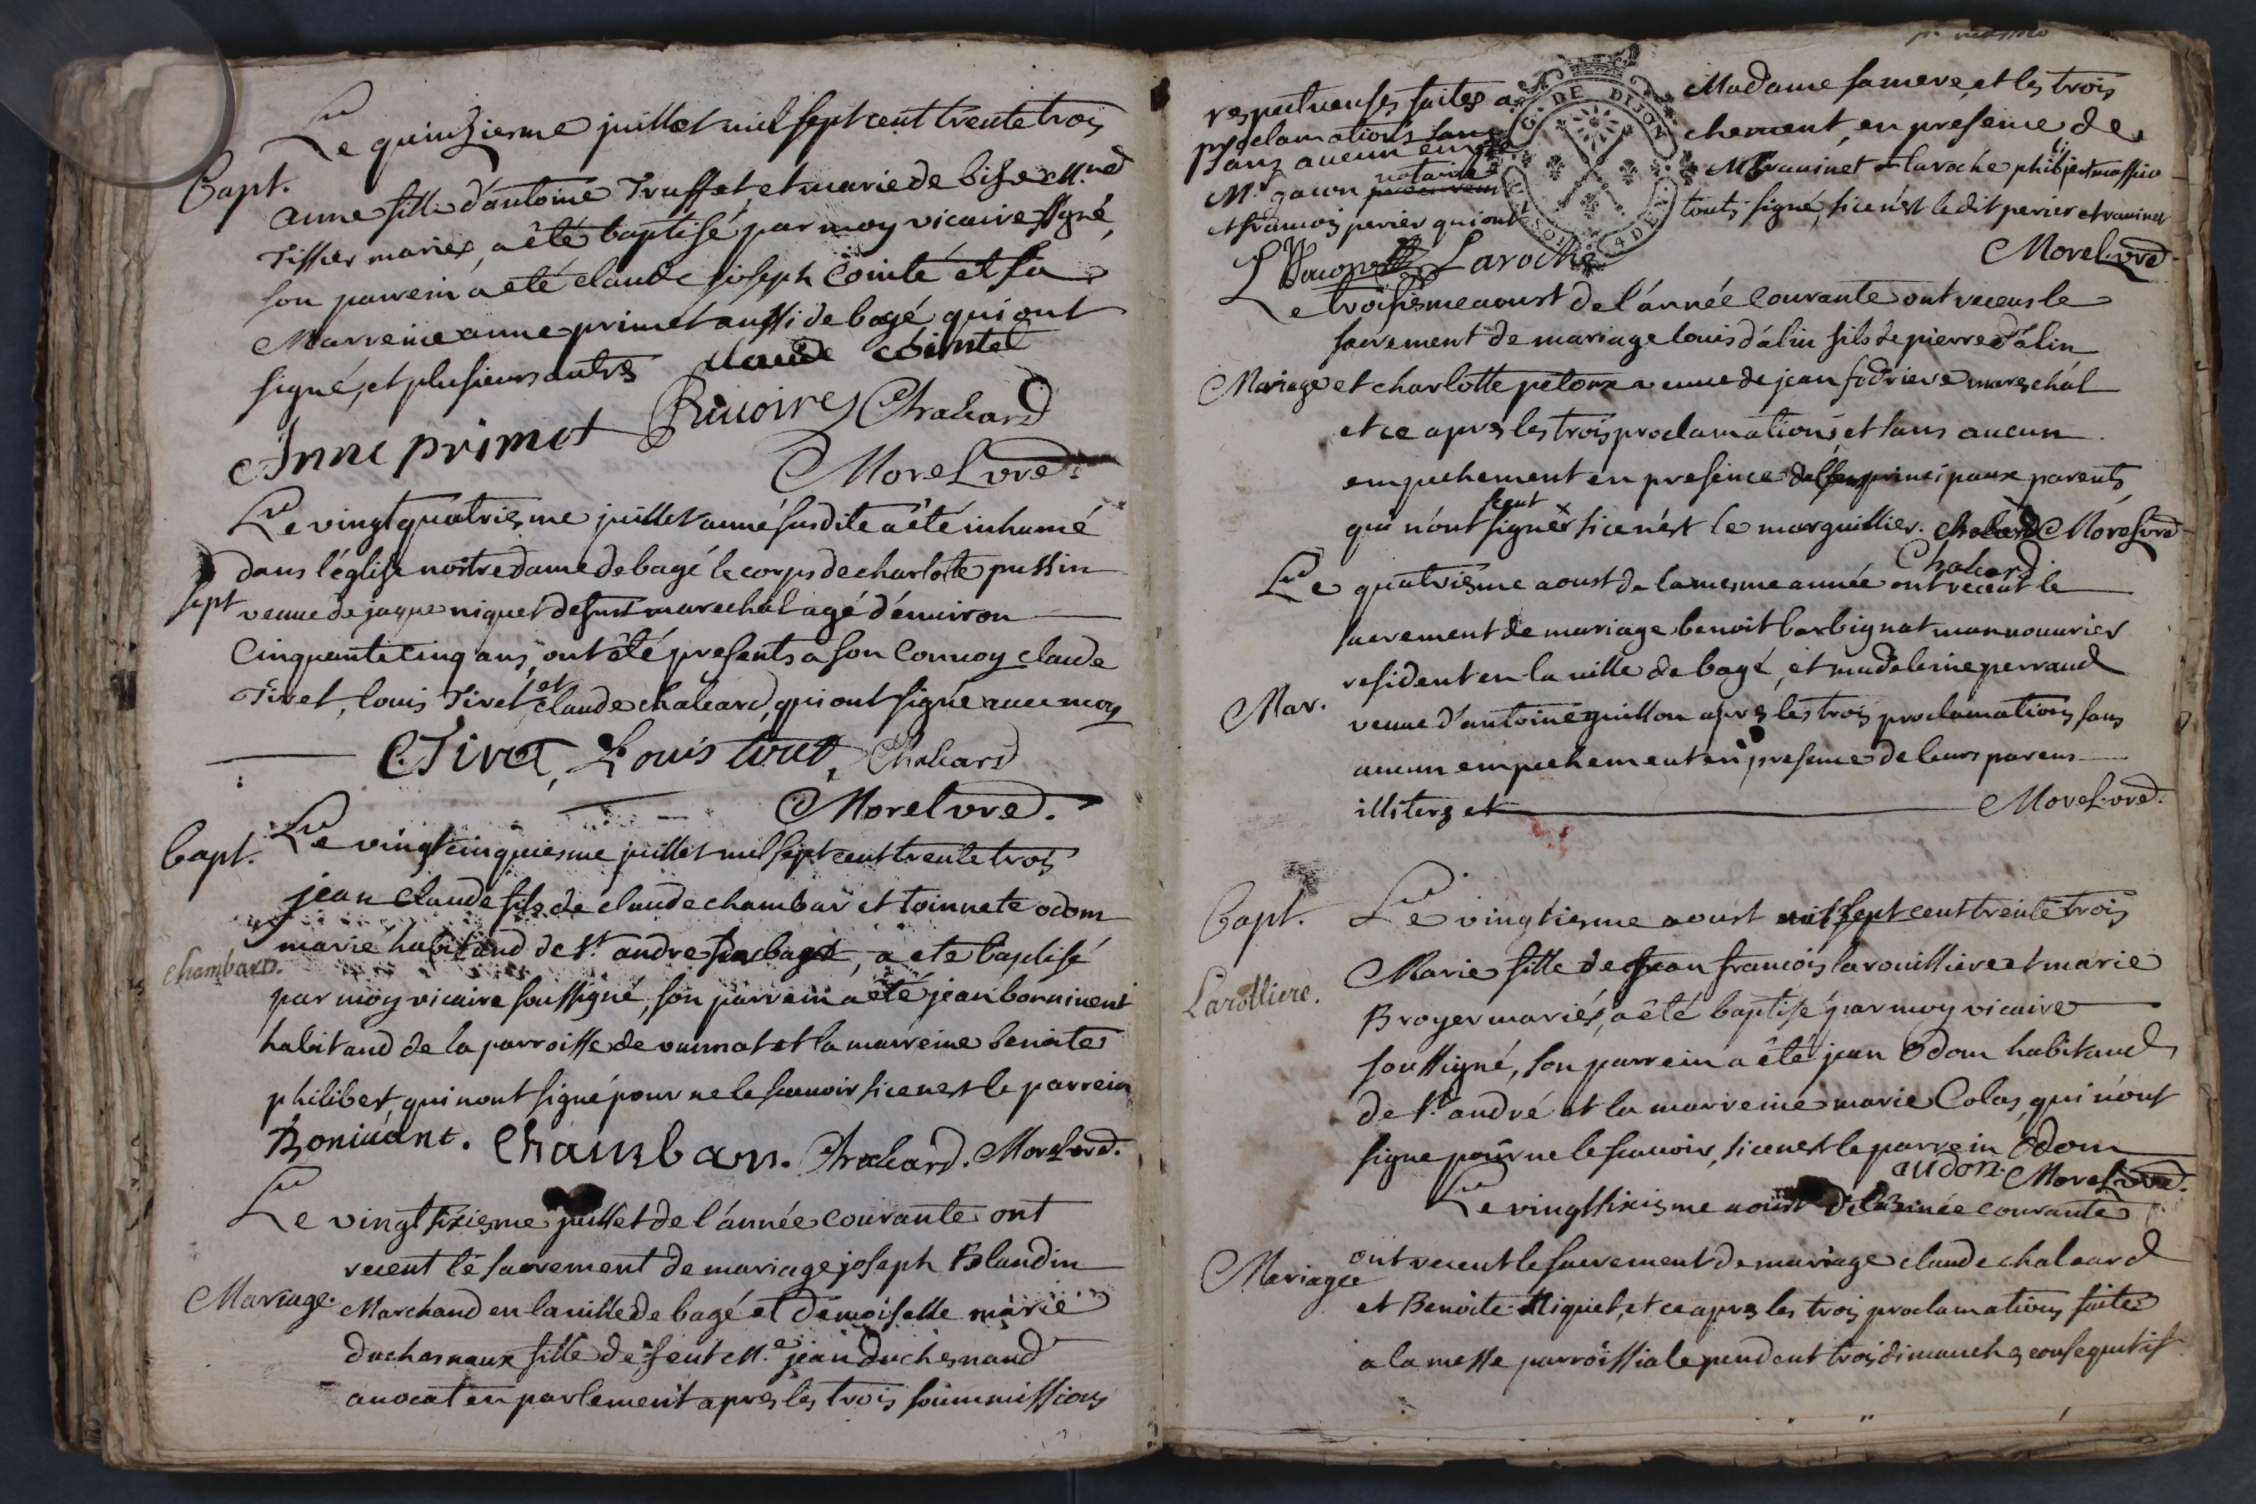 Le quinziesme juillet mil sept cent trente trois
Bapt.
anne fille d'antoine Truffet et marie de bise M.nd
Tissier mariés, a êté baptisé par moy vicaire ssgné,
son parrein a eté claude joseph Cointé et sa
Marreine anne primet aussi de bagé, qui ont
signé, et plusieurs autres claude cointet
Anne primet Rivoire Chalcard
Morel vre.
Le vingt quatriesme juillet année susdite a êté inhumé
dans l'église nostre dame de bagé le corps de charlote pussin
sept
veuue de jaque niquet defunt mareschal agé d'enuiron
Cinquante cinq ans, ont êté presents a son Conuoy claude
Tivet, louis Tivet et claude chalcard, qui ont signé auec moy
C Tivet, Louis tivet, Chalcard
Morel vre.
Bapt.
Le vingt cinquiesme juillet mil sept cent trente trois
jean Claude fils de claude chambar et toinnete odom
marié habitand de st. andre de bagé, a ete baptisé
chambard.
par moy vicaire soussigné, son parrein a êté jean boniuent
habitand de la parroisse de vonnat et la marreine benoite
philibert, qui n'ont signé pour ne le scauoir si ce n'est le parrein
Boniuant. Chambar. Chalcard. Morel vre.
Le vingt sixiesme juillet de l'année courante ont
receut le sacrement de mariage joseph Blandin
Mariage.
Marchand en la ville de bagé et démoiselle marie
duchesnaux fille de feut M.e jean Duchesnaud
auocat en parlement apres les trois soummissions
respectueuses faites a Madame sa mere, et les trois
proclamations sans
sans aucun empechement, en presence de
Mr. jacon notaire M Grauinet laroche
et francois perier qui ont touts signé, si ce n'est le dit perier et
Laroche
Morel. vre
Le troisiesme aoust de l'année Courante ont receus le
sacrement de mariage louis d'alin fils de pierre d'alin
Mariage
et charlotte peloux veuue de jean fodrieve mareschal
et ce apres les trois proclamations et sans aucun
empechement en presence de leur principaux parents
qui n'ont sceut signer si ce n'est le marguillier. Chalcard Morel vre
Chalcard
Le quatriesme aoust de la mesme année ont receut le
sacrement de mariage benoit barbignat mannouurier
resident en la uille de bagé, et madeleine perraud
Mar.
veuue d'antoine guillon apres les trois proclamations sans
aucun empechement en presence de leurs parens
illiterés et Morel. vre.
Bapt.
Le vingtiesme aoust mil sept cent trente trois
Marie fille de Jean francois larouilliere et marie
Larolliere.
Broyer mariés, a êté baptisé par moy vicaire
soussigné, son parrein a êté jean Odom habitand
de st. andré et la marreine marie Colas, qui n'ont
signe pour ne le scauoir, si ce n'est le parrein Odom
audon. Morel vre.
Le vingt sixiesme aoust de l'année courante
ont receut le sacrement de mariage claude chalcard
Mariage
et Benoite Niquet, et ce apres les trois proclamations faites
a la messe parroissiale pendent trois dimanches consequtifs
G. DE DIJON
4 DEN